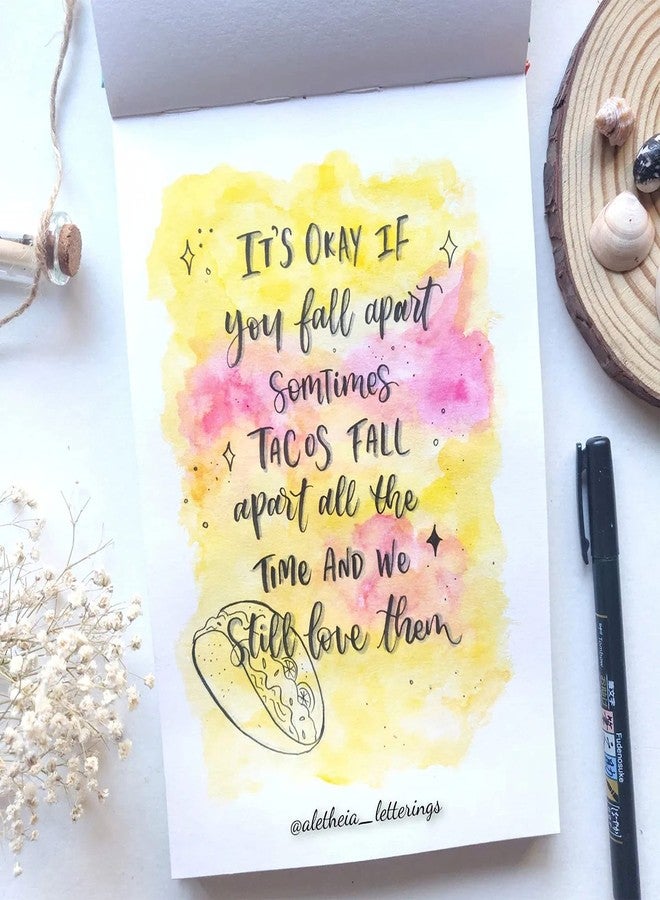 IT'S OKAY IF
you fall apart
SOMTIMES
TACOS FALL
apart all the
TIME AND WE
Still love them
@aletheia_letterings
Tombow
Fudenosuke